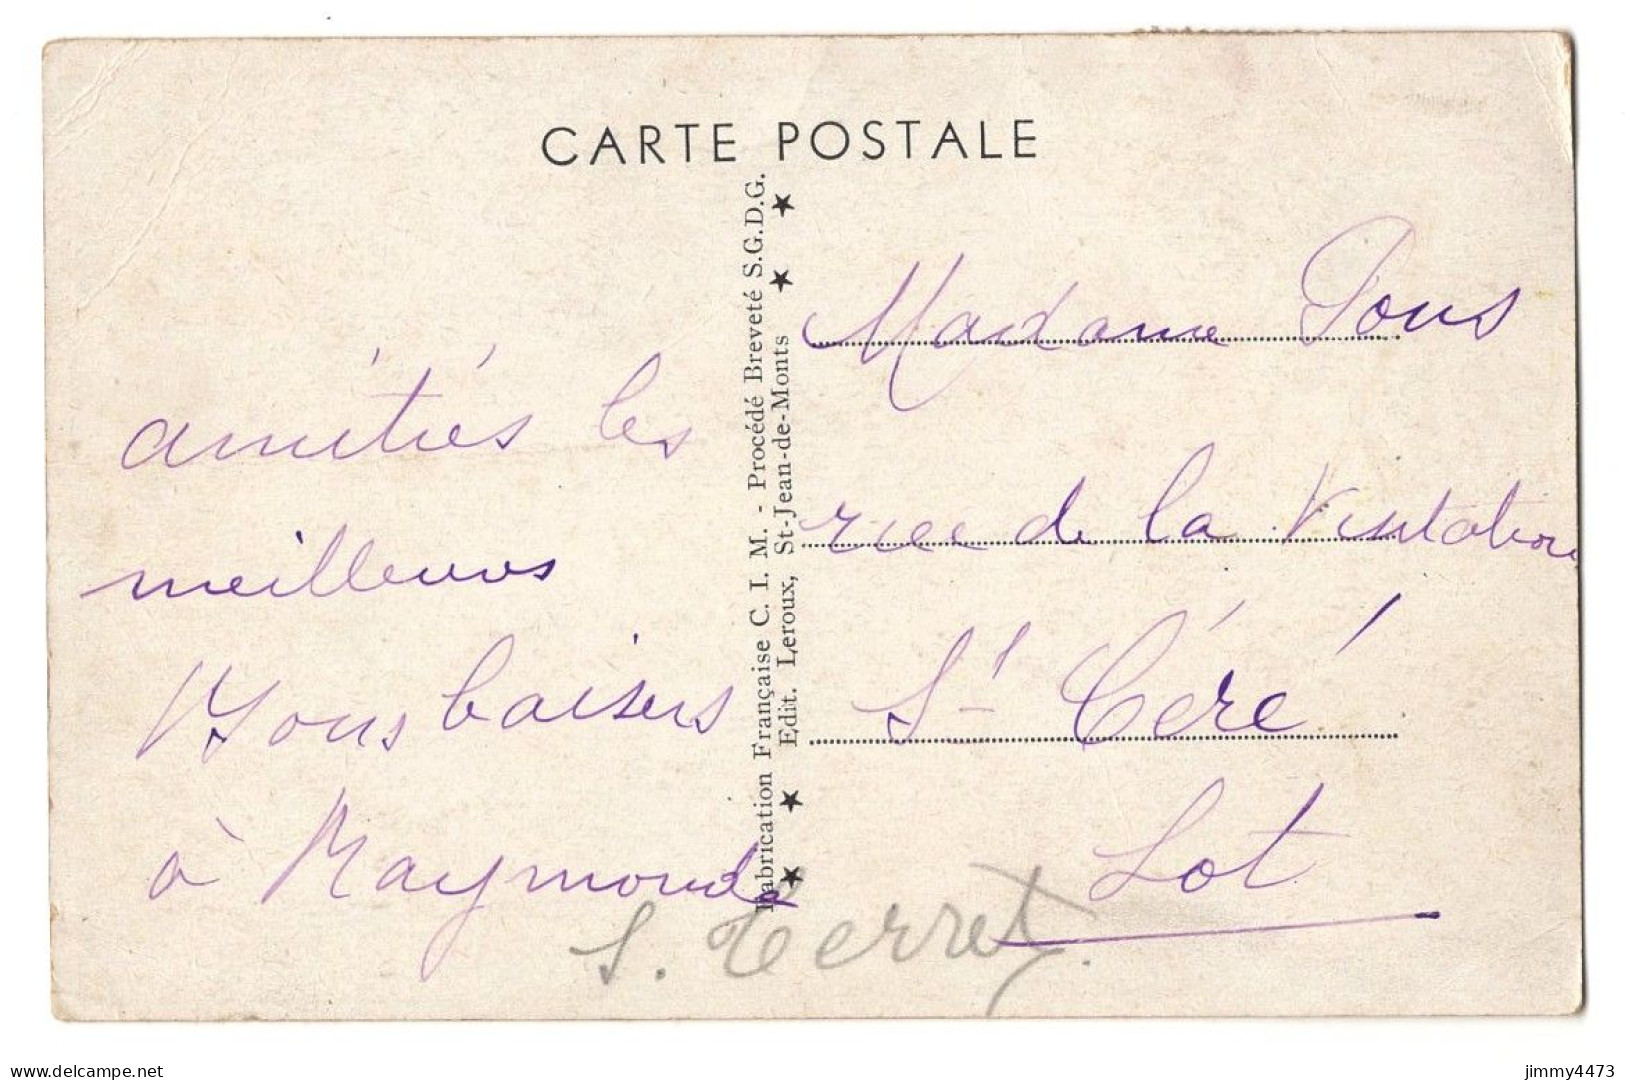 CARTE POSTALE
amitiés les
meilleures
Bons baisers
à Raymonde
Fabrication Française C. I. M. - Procédé Breveté S.G.D.G.
Edit. Leroux, St-Jean-de-Monts
Madame Pons
rue de la Visitation
St Céré
Lot
S. Terret.
delcampe.net
jimmy4473